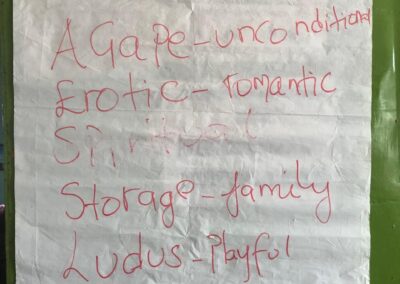 AGape-unconditional
Erotic-romantic
Spiritual
Storage-family
Ludus-Playful